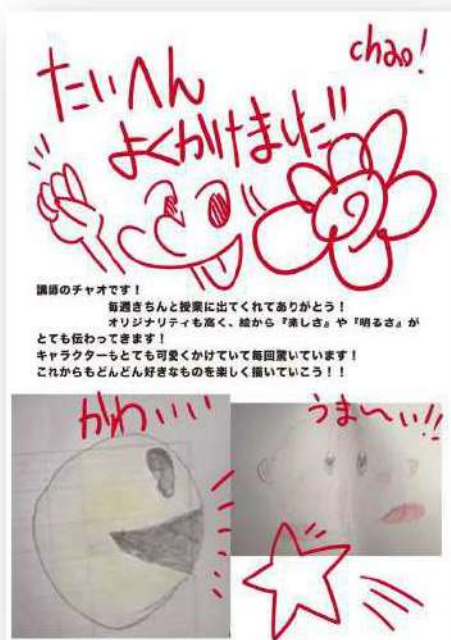 chao!
たいへん
よくかけました!!
講師のチャオです!
毎週きちんと授業に出てくれてありがとう!
オリジナリティも高く、絵から『楽しさ』や『明るさ』が
とても伝わってきます!
キャラクターもとても可愛くかけていて毎回驚いています!
これからもどんどん好きなものを楽しく描いていこう!!
かわいい
うま〜い!!